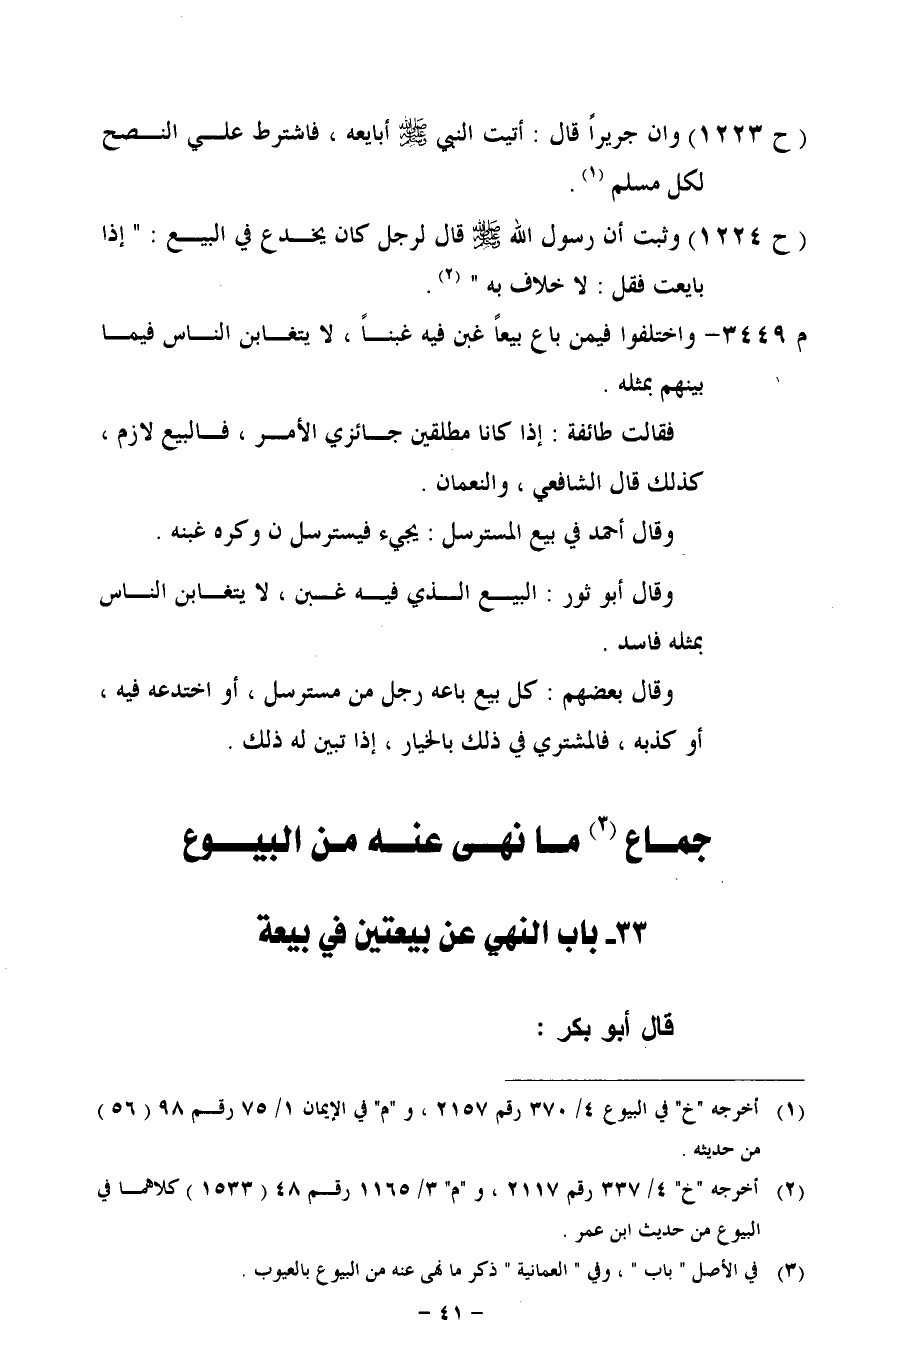 ( ح ١٢٢٣) وان جريراً قال : أتيت النبي ﷺ أبايعه ، فاشترط علي النصح
لكل مسلم (١) .
( ح ١٢٢٤) وثبت أن رسول الله ﷺ قال لرجل كان يخدع في البيع : " إذا
بايعت فقل : لا خلاف به " (٢) .
م ٣٤٤٩- واختلفوا فيمن باع بيعاً غبن فيه غبناً ، لا يتغابن الناس فيما
بينهم بمثله .
فقالت طائفة : إذا كانا مطلقين جائزي الأمر ، فالبيع لازم ،
كذلك قال الشافعي ، والنعمان .
وقال أحمد في بيع المسترسل : يجيء فيسترسل ن وكره غبنه .
وقال أبو ثور : البيع الذي فيه غبن ، لا يتغابن الناس
بمثله فاسد .
وقال بعضهم : كل بيع باعه رجل من مسترسل ، أو اختدعه فيه ،
أو كذبه ، فالمشتري في ذلك بالخيار ، إذا تبين له ذلك .
جماع (٣) ما نهى عنه من البيوع
٣٣- باب النهي عن بيعتين في بيعة
قال أبو بكر :
(١) أخرجه "خ" في البيوع ٤/ ٣٧٠ رقم ٢١٥٧ ، و "م" في الإيمان ١/ ٧٥ رقم ٩٨ ( ٥٦ )
من حديثه .
(٢) أخرجه "خ" ٤/ ٣٣٧ رقم ٢١١٧ ، و "م" ٣/ ١١٦٥ رقم ٤٨ ( ١٥٣٣ ) كلاهما في
البيوع من حديث ابن عمر .
(٣) في الأصل " باب " ، وفي " العمانية " ذكر ما نهى عنه من البيوع بالعيوب .
- ٤١ -